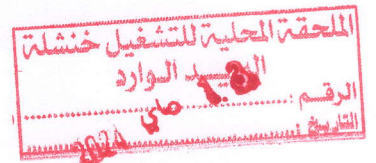 الملحقة المحلية للتشغيل خنشلة
البريد الوارد
الرقم :
التاريخ : ماي 2024